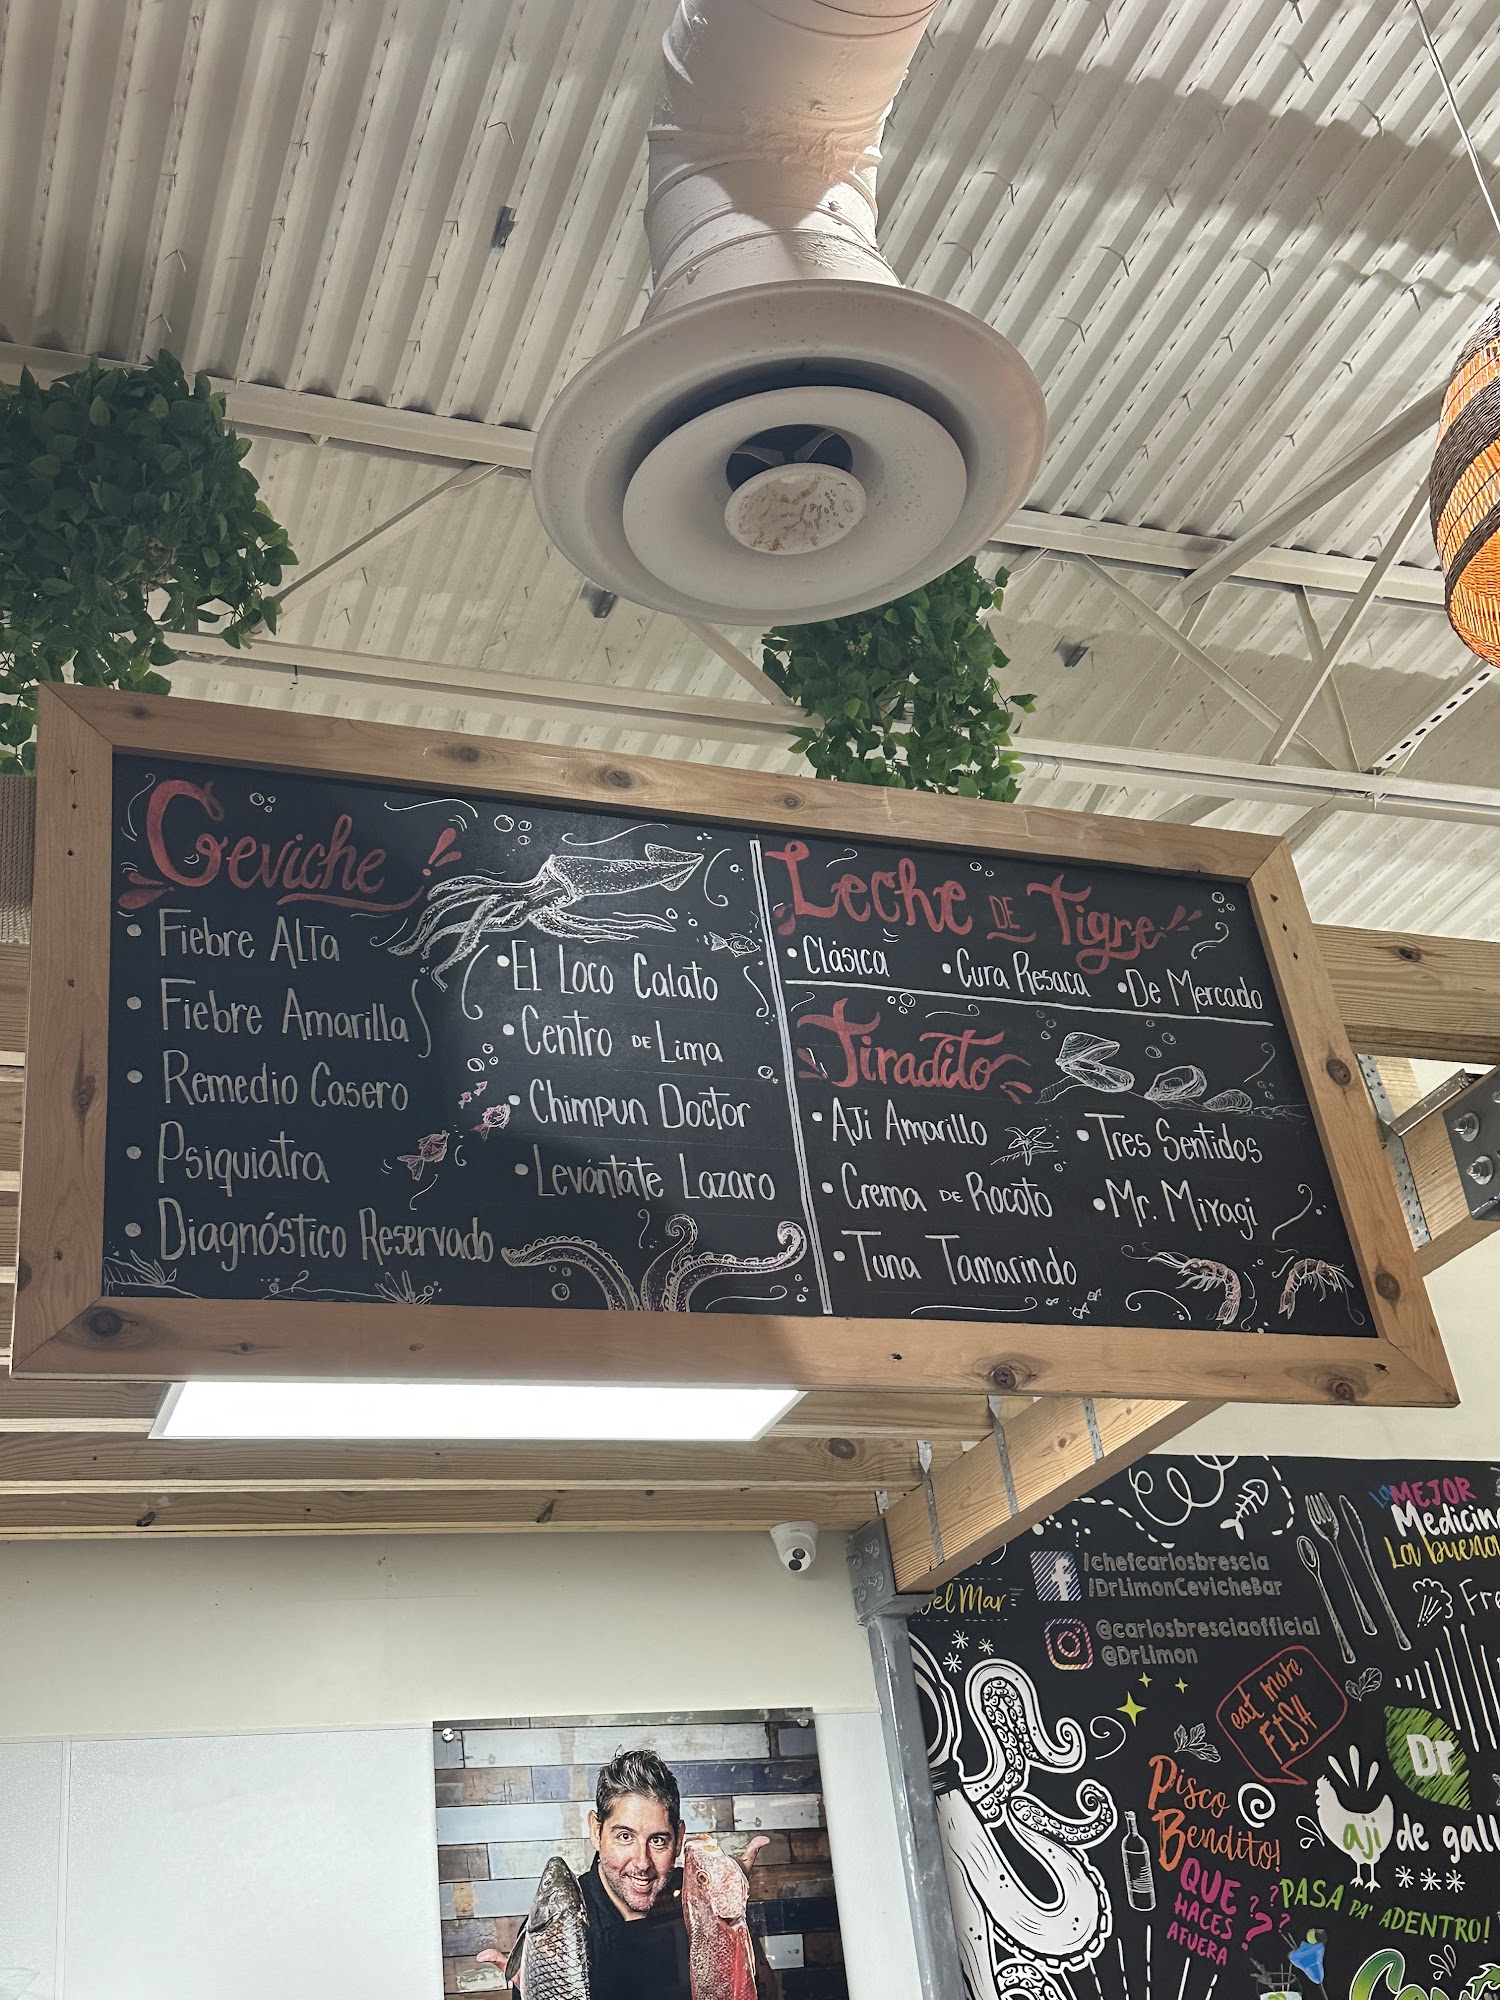 Ceviche!
• Fiebre Alta
• Fiebre Amarilla
• Remedio Casero
• Psiquiatra
• Diagnóstico Reservado
• El Loco Calato
• Centro DE Lima
• Chimpun Doctor
• Levántate Lazaro
Leche DE Tigre
• Clásica • Cura Resaca • De Mercado
Tiradito
• Aji Amarillo
• Crema DE Rocoto
• Tuna Tamarindo
• Tres Sentidos
• Mr. Miyagi
La MEJOR
Medicina
La buena
del Mar
/chefcarlosbrescia
/DrLimonCevicheBar
@carlosbresciaofficial
@DrLimon
eat more
FISH
Dr
Pisco
Bendito!
aji de gall
QUE
HACES
AFUERA
???
PASA PA' ADENTRO!